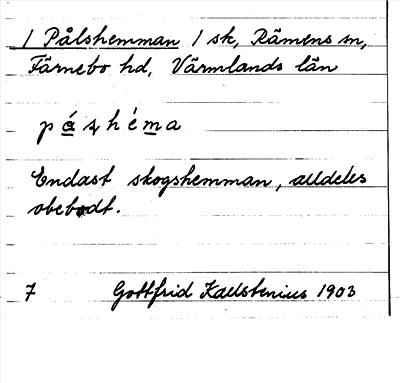 1 Pålshemman 1 sk, Rämens sn,
Färnebo hd, Värmlands län
Endast skogshemman, alldeles
obebodt.
7 Gottfrid Kallstenius 1903